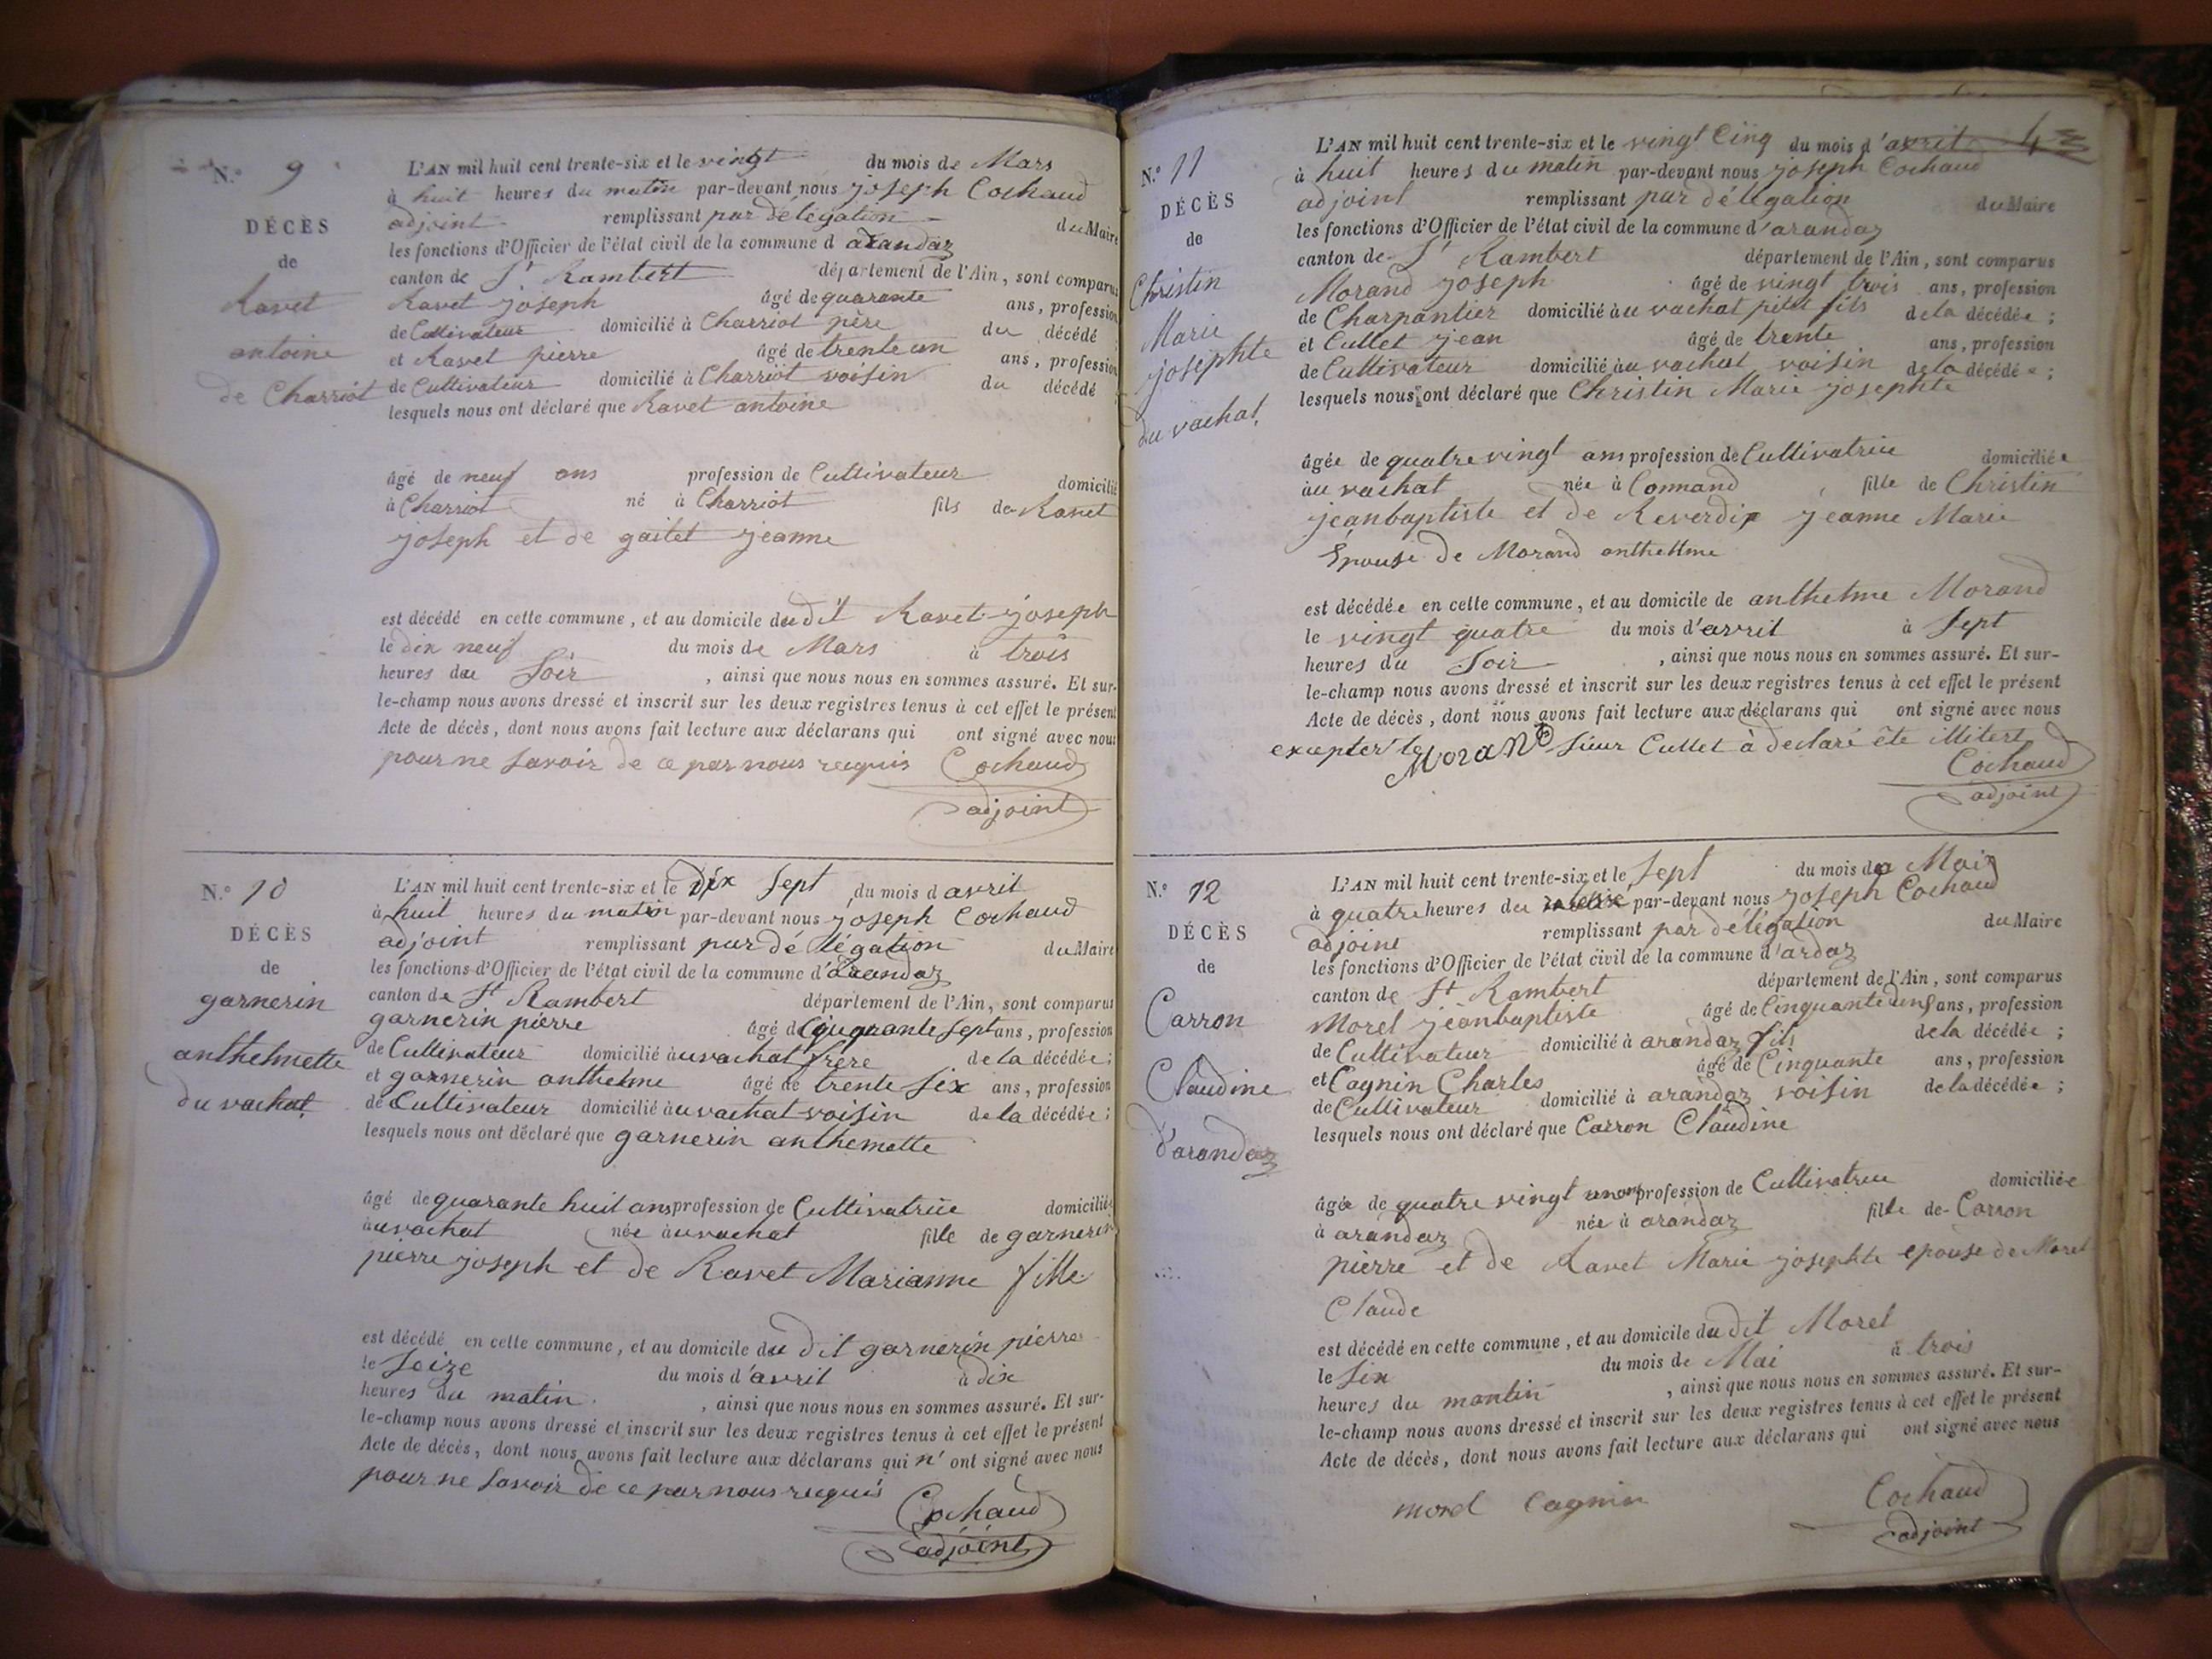 N.° 9
DÉCÈS
de
Ravet
antoine
de Charriot
L'AN mil huit cent trente-six et le vingt du mois de Mars
à huit heures du matin par-devant nous joseph Cochaud
adjoint remplissant par délégation du Maire
les fonctions d'Officier de l'état civil de la commune d arandaz
canton de St Rambert département de l'Ain, sont comparus
Ravet joseph âgé de quarante ans, profession
de Cultivateur domicilié à Charriot père du décédé
et Ravet pierre âgé de trente un ans, profession
de Cultivateur domicilié à Charriot voisin du décédé
lesquels nous ont déclaré que Ravet antoine
âgé de neuf ans profession de Cultivateur domicilié
à Charriot né à Charriot fils de Ravet
joseph et de gaitet jeanne
est décédé en cette commune, et au domicile du dit Ravet joseph
le dix neuf du mois de Mars à trois
heures du Soir , ainsi que nous nous en sommes assuré. Et sur-
le-champ nous avons dressé et inscrit sur les deux registres tenus à cet effet le présent
Acte de décès, dont nous avons fait lecture aux déclarans qui ont signé avec nous
pour ne Savoir de ce par nous requis Cochaud
adjoint
N.° 10
DÉCÈS
de
garnerin
anthelmette
du vachat
L'AN mil huit cent trente-six et le dix Sept du mois d avril
à huit heures du matin par-devant nous joseph Cochaud
adjoint remplissant par délégation du Maire
les fonctions d'Officier de l'état civil de la commune d'arandaz
canton de St Rambert département de l'Ain, sont comparus
garnerin pierre âgé de quarante Sept ans, profession
de Cultivateur domicilié au vachat frère de la décédée;
et garnerin anthelme âgé de trente Six ans, profession
de Cultivateur domicilié au vachat voisin de la décédée;
lesquels nous ont déclaré que garnerin anthemette
âgé de quarante huit ans profession de Cultivatrice domiciliée
au vachat née au vachat fille de garnerin
pierre joseph et de Ravet Marianne fille
est décédé en cette commune, et au domicile du dit garnerin pierre
le Seize du mois d'avril à dix
heures du matin , ainsi que nous nous en sommes assuré. Et sur-
le-champ nous avons dressé et inscrit sur les deux registres tenus à cet effet le présent
Acte de décès, dont nous avons fait lecture aux déclarans qui n' ont signé avec nous
pour ne Savoir de ce par nous requis
Cochaud
adjoint
N.° 11
DÉCÈS
de
Christin
Marie
josephte
du vachat
L'AN mil huit cent trente-six et le vingt Cinq du mois d'avril
à huit heures du matin par-devant nous joseph Cochaud
adjoint remplissant par délégation du Maire
les fonctions d'Officier de l'état civil de la commune d'arandaz
canton de St Rambert département de l'Ain, sont comparus
Morand joseph âgé de vingt trois ans, profession
de Charpantier domicilié au vachat petit fils de la décédée;
et Cullet jean âgé de trente ans, profession
de Cultivateur domicilié au vachat voisin de la décédée;
lesquels nous ont déclaré que Christin Marie josephte
âgée de quatre vingt ans profession de Cultivatrice domiciliée
au vachat née à Connand , fille de Christin
jeanbaptiste et de Reverdix jeanne Marie
Epouse de Morand anthelme
est décédée en cette commune, et au domicile de anthelme Morand
le vingt quatre du mois d'avril à Sept
heures du Soir , ainsi que nous nous en sommes assuré. Et sur-
le-champ nous avons dressé et inscrit sur les deux registres tenus à cet effet le présent
Acte de décès, dont nous avons fait lecture aux déclarans qui ont signé avec nous
excepter le Sieur Cullet à declaré éte illiteré
MoranD
Cochaud
adjoint
N.° 12
DÉCÈS
de
Carron
Claudine
d'arandaz
L'AN mil huit cent trente-six et le Sept du mois de Mai
à quatre heures du par-devant nous joseph Cochaud
adjoine remplissant par délégation du Maire
les fonctions d'Officier de l'état civil de la commune d'ardaz
canton de St Rambert département de l'Ain, sont comparus
Morel jeanbaptiste âgé de Cinquante ans, profession
de Cultivateur domicilié à arandaz fils de la décédée;
et Cagnin Charles âgé de Cinquante ans, profession
de Cultivateur domicilié à arandaz voisin de la décédée;
lesquels nous ont déclaré que Carron Claudine
âgée de quatre vingt profession de Cultivatrice domiciliée
à arandaz née à arandaz fille de Carron
pierre et de Ravet Marie josephte epouse de Morel
Claude
est décédé en cette commune, et au domicile du dit Morel
le Six du mois de Mai à trois
heures du mantin , ainsi que nous nous en sommes assuré. Et sur-
le-champ nous avons dressé et inscrit sur les deux registres tenus à cet effet le présent
Acte de décès, dont nous avons fait lecture aux déclarans qui ont signé avec nous
morel Cagnin Cochaud
adjoint